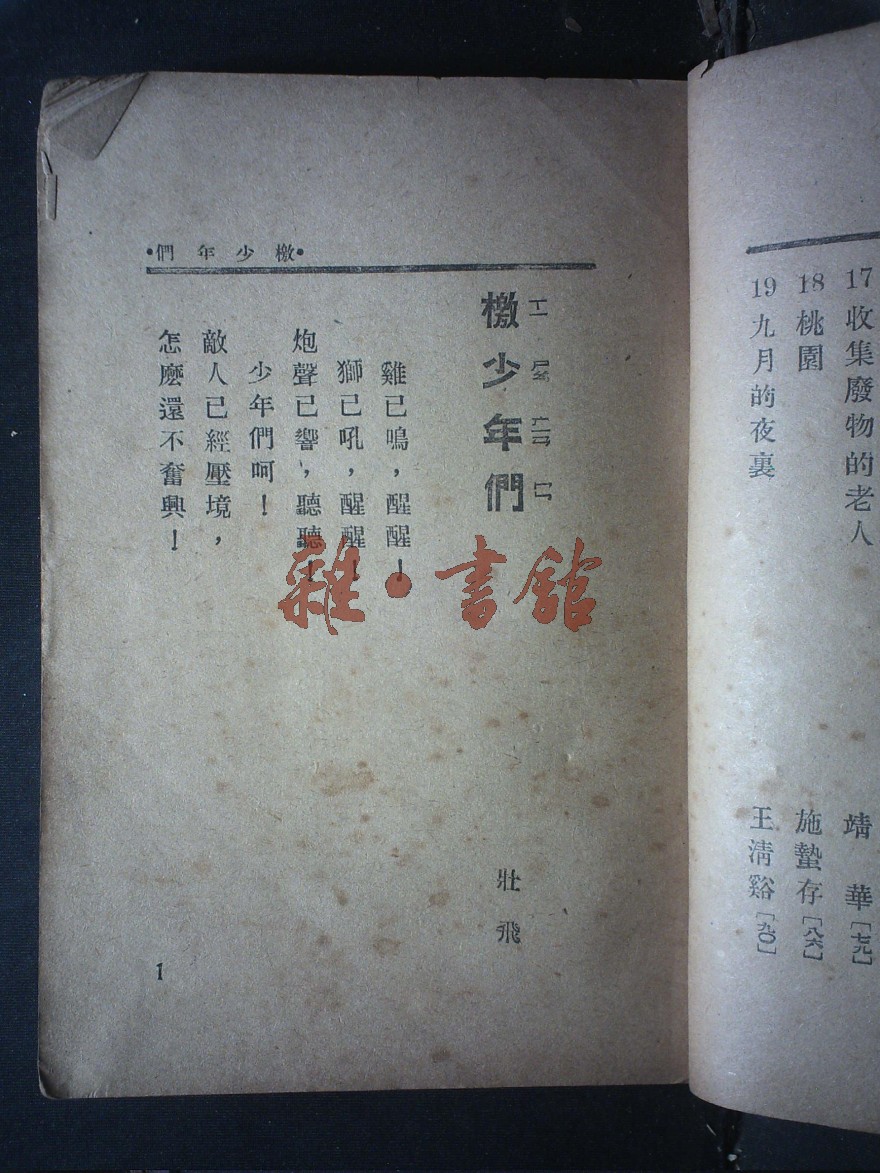 17 收集廢物的老人 靖華[七九]
18 桃園 施蟄存[八六]
19 九月的夜裏 王淸谿[九〇]
•檄少年們•
檄少年們
壯飛
雞已鳴，醒醒！
獅已吼，醒醒！
炮聲已響，聽聽！
少年們呵！
敵人已經壓境，
怎麼還不奮興！
1
雜•書館